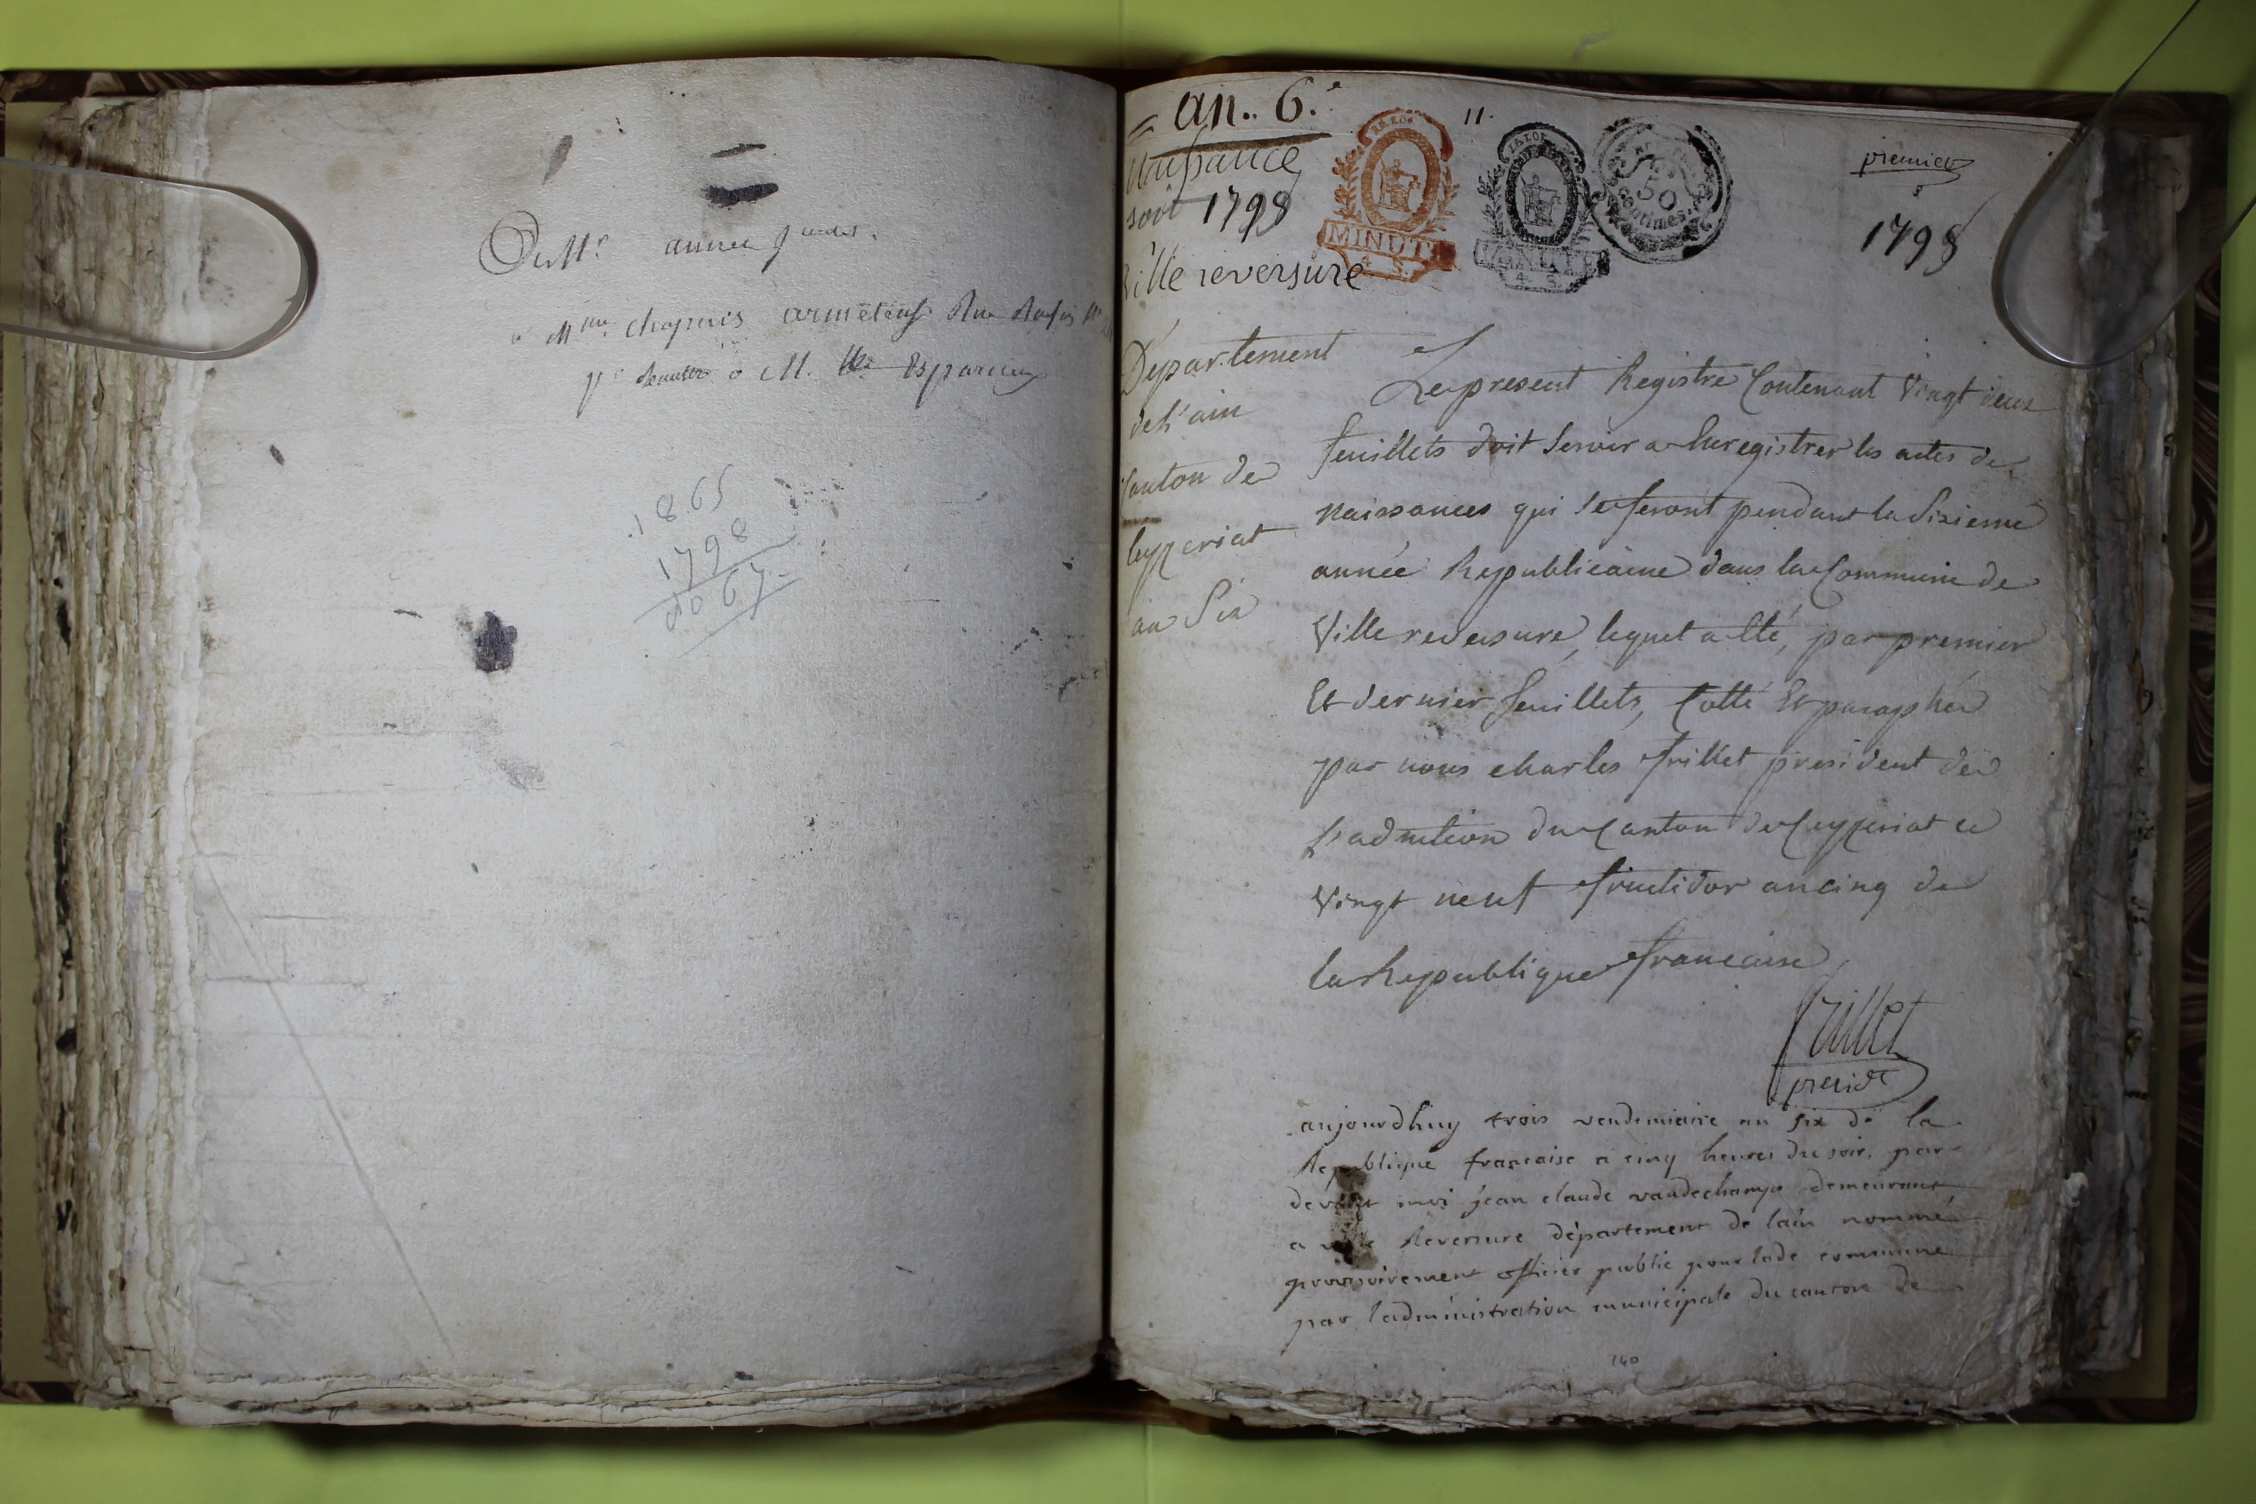 1865
1798
0067
an.. 6.e
Naissance
soit 1798
Ville reversure
Département
de L'ain
Canton de
Ceyzeriat
an Six
11.
LA LOI
MINUTE
4. S.
LA LOI
4. S.
50
centimes
premier
1798
Le present Registre Contenant Vingt deux
feuillets doit Servir a Enregistrer les actes de
naissances qui se feront pendant la Sixieme
année Republicaine dans la Commune de
Ville reversure, lequel a Eté, par premier
Et dernier feuillets, Cotté Et paraphé
par nous charles frillet président de
L'admtion du Canton de Ceyzeriat ce
Vingt neuf fructidor an cinq de
la Republique francaise
frillet
presidt
aujourdhuy trois vendemiaire an six de la
Republique francaise a cinq heures du soir, par
devant moi jean claude vaudechamp demeurant
a Reversure département de lain nommé
provisoirement officier public pour lade commune
par l'administration municipale du canton de
140